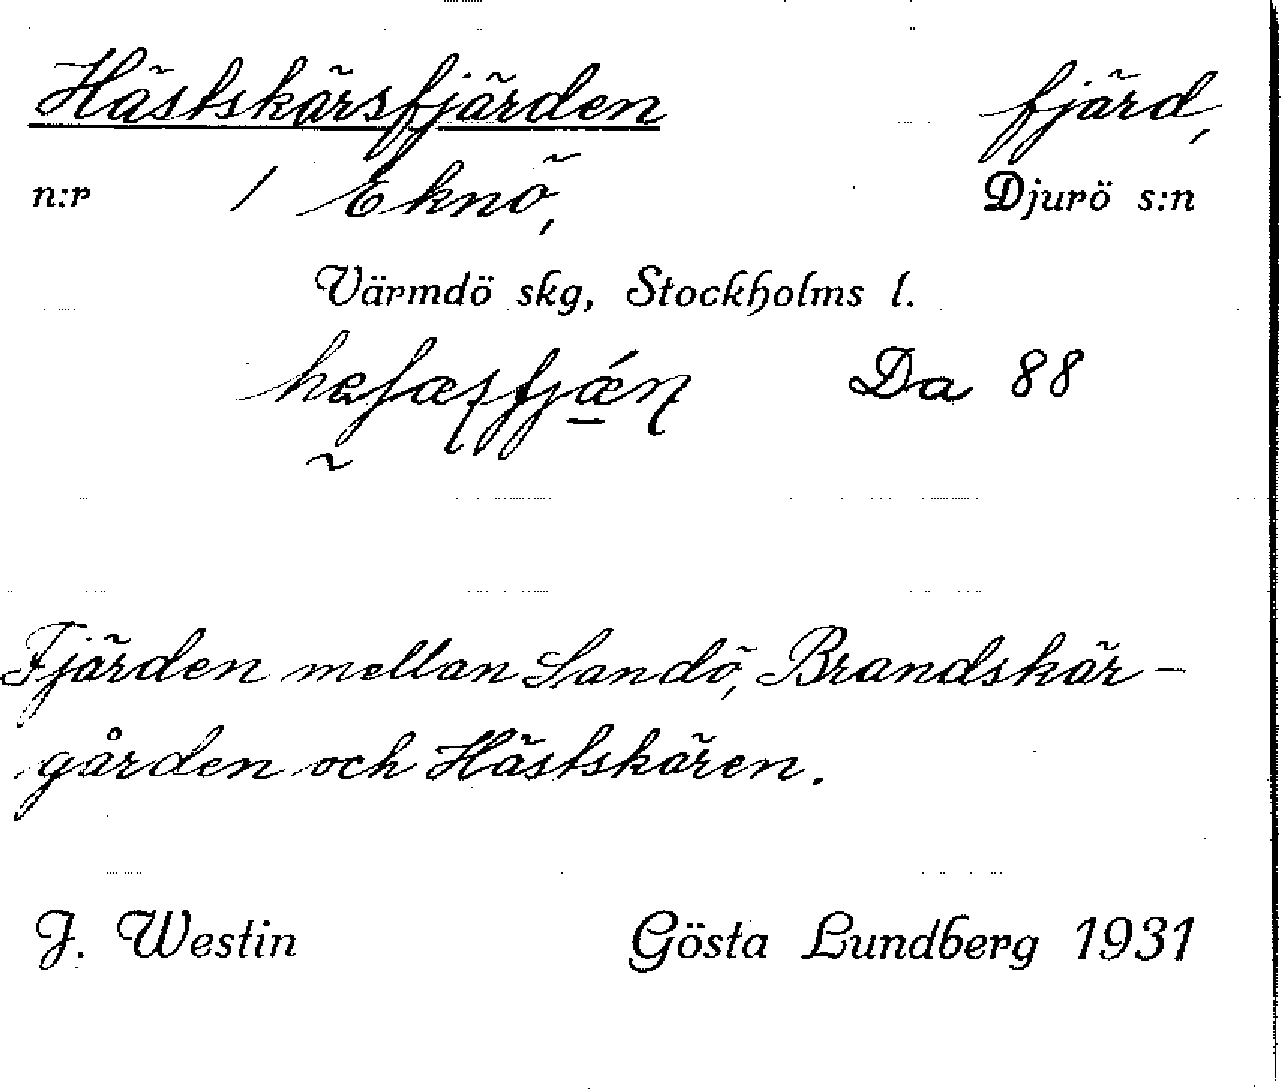 Hästskärsfjärden fjärd,
n:r 1 Eknö, Djurö s:n
Värmdö skg, Stockholms l.
Da 88
Fjärden mellan Sandö, Brandskär-
gården och Hästskären.
J. Westin Gösta Lundberg 1931